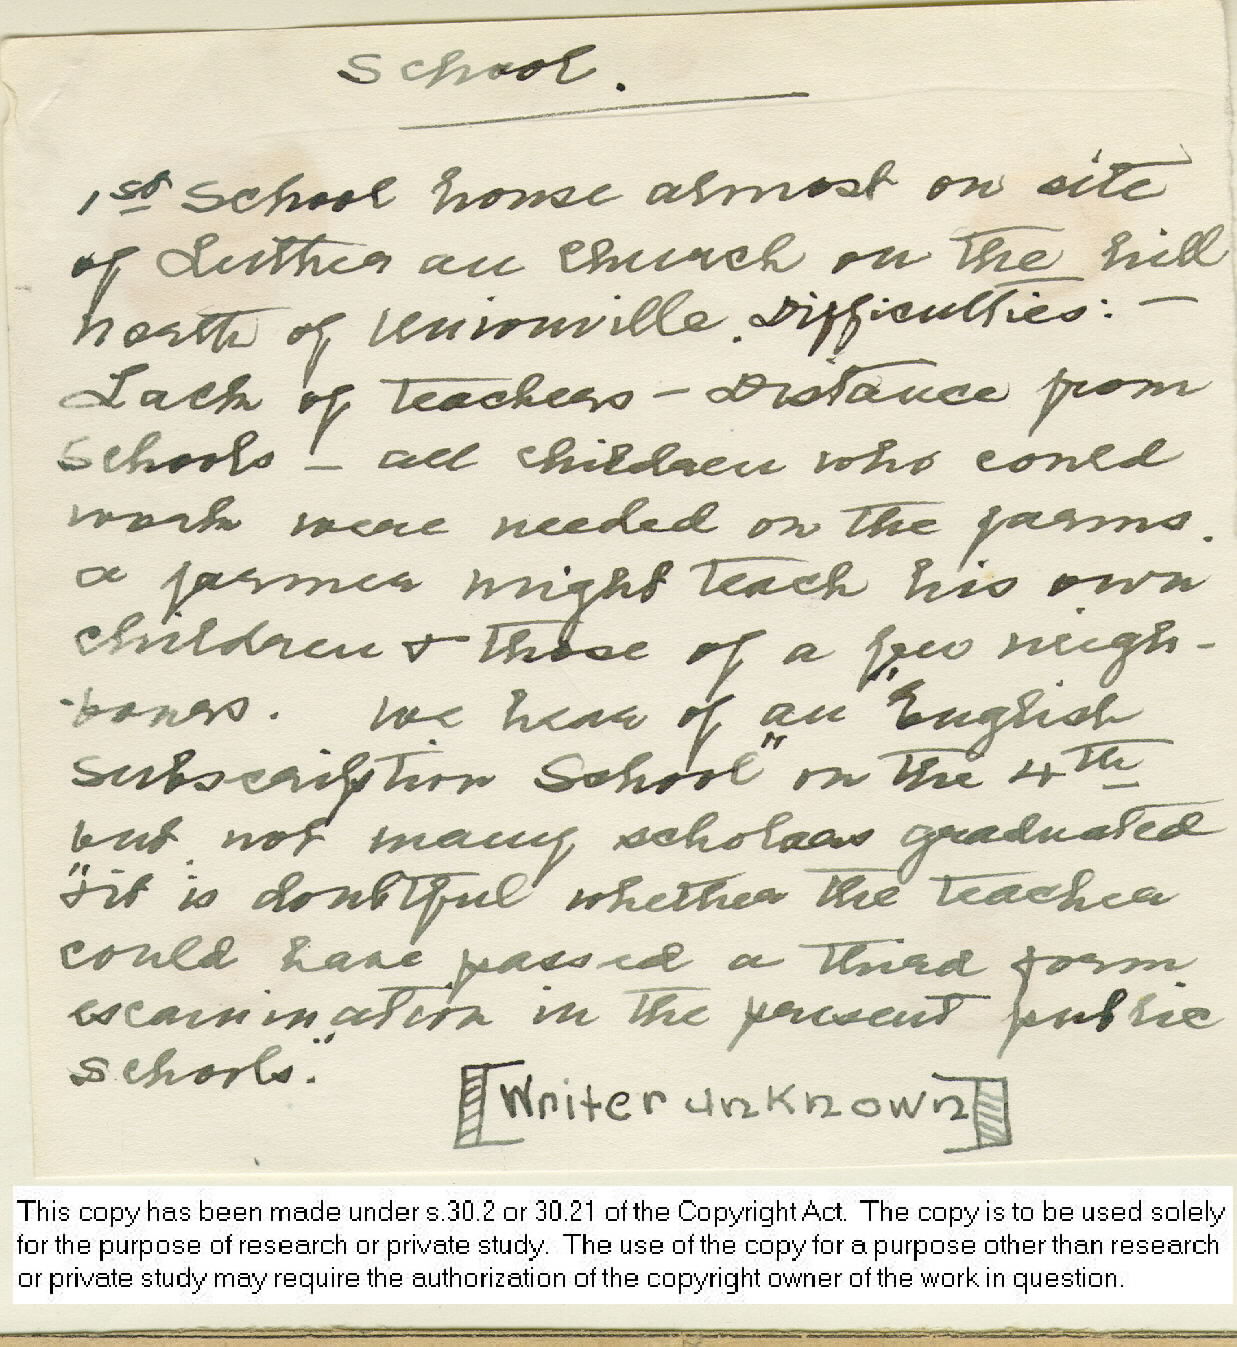 School.
1st School house almost on site
of Lutheran Church on the hill
north of Unionville. Difficulties:—
Lack of teachers — Distance from
Schools — all children who could
work were needed on the farms.
a farmer might teach his own
children & those of a few neigh-
-bours. We hear of an "English
Subscription School" on the 4th
but not many scholars graduated
"& it is doubtful whether the teacher
could have passed a third form
examination in the present public
schools."
[Writer unknown]
This copy has been made under s.30.2 or 30.21 of the Copyright Act. The copy is to be used solely
for the purpose of research or private study. The use of the copy for a purpose other than research
or private study may require the authorization of the copyright owner of the work in question.